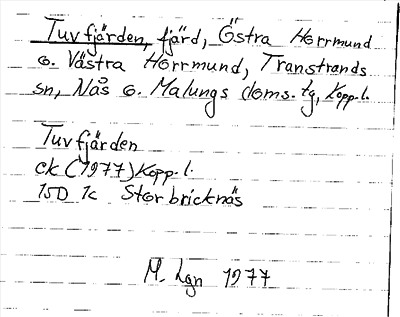 Tuvfjärden, fjärd, Östra Horrmund
o. Västra Horrmund, Transtrands
sn, Nås o. Malungs doms. tg, Kopp. l.
Tuvfjärden
ek (1977) Kopp. l.
15D 1c Storbricknäs
M. Lgn 1977